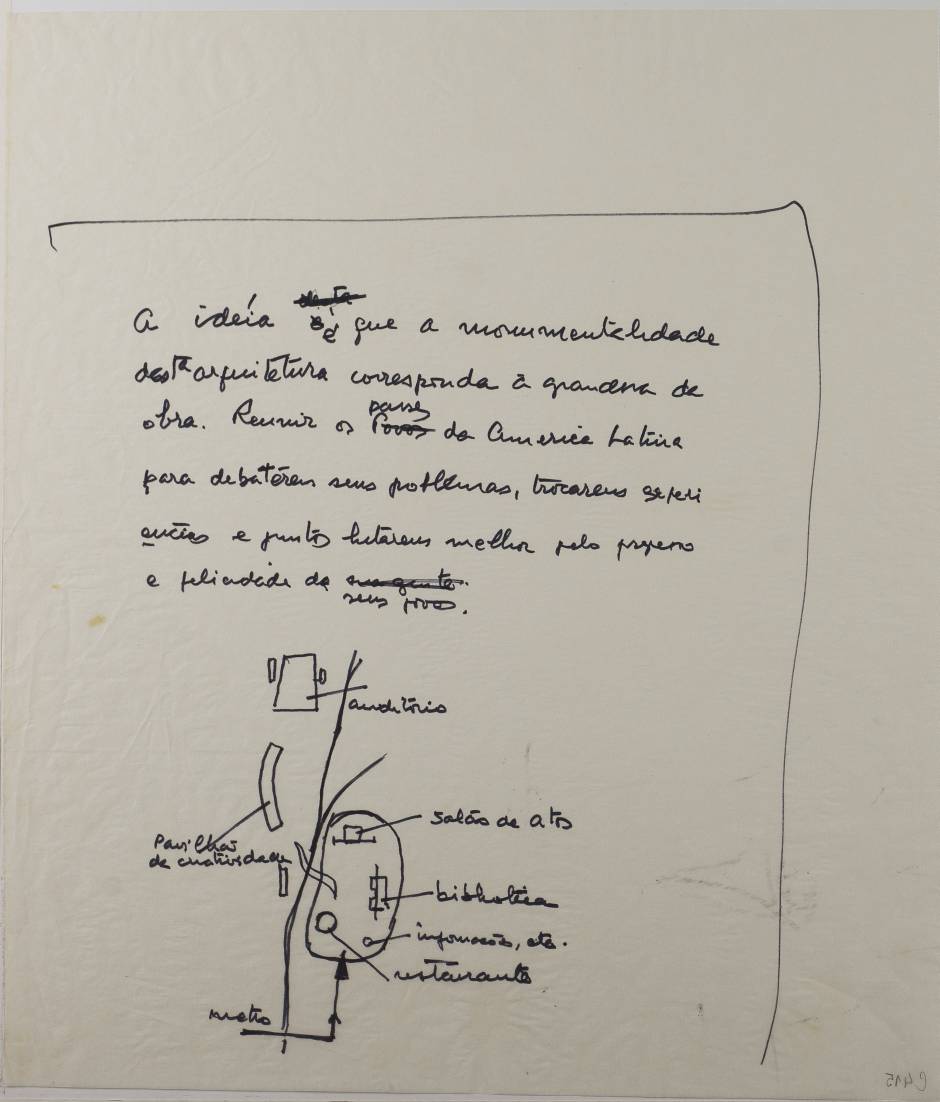 A idéia é que a monumentalidade
desta arquitetura corresponda à grandeza da
obra. Reunir os países da America Latina
para debaterem seus problemas, trocarem experi
ências e juntos lutarem melhor pelo progresso
e felicidade de
seus povos.
auditório
Pavilhão
de criatividade
salão de atos
biblioteca
informações, etc.
restaurante
metro